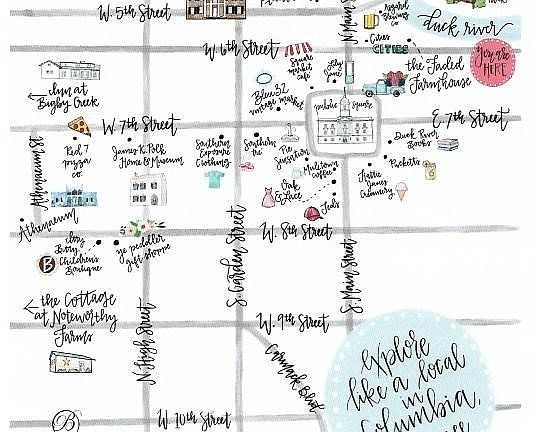 W. 5th Street
N. Main S
Asgard
Brewing
Co.
duck river
W. 6th Street
Square
market
cafe
Lily
Jane
Cities
CITIES
You are
HERE
the Faded
Farmhouse
Inn at
Bigby Creek
Blue 32
vintage market
public square
E. 7th Street
W. 7th Street
Athenaeum St
Red 7
pizza
co.
James K. Polk
Home & Museum
Southern
Exposure
Clothing
Southern
Tre
Pie
Sensation
Muletown
coffee
Duck River
Books
Puckett's
Hattie
Jane's
Creamery
Oak
& Lace
Ted's
Athenaeum
W. 8th Street
Bitty
Children's
Boutique
B
ye peddler
gift shoppe
S. Garden Street
S. Main Street
the Cottage
at Noteworthy
Farms
N. High Street
W. 9th Street
Carmack Blvd
explore
like a local
in
Columbia,
B
W. 10th Street